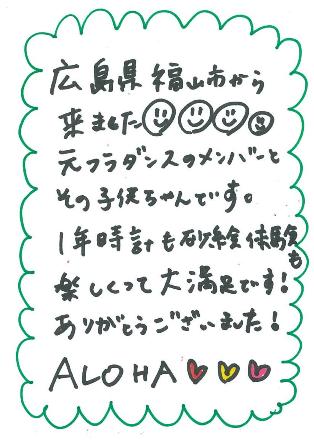 広島県福山市から
来ました
元フラダンスのメンバーと
その子供ちゃんです。
1年時計も砂絵体験も
楽しくって大満足です!
ありがとうございました!
ALOHA